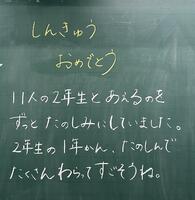 しんきゅう
おめでとう
11人の2年生とあえるのを
ずっとたのしみにしていました。
2年生の1年かん、たのしんで
たくさんわらってすごそうね。